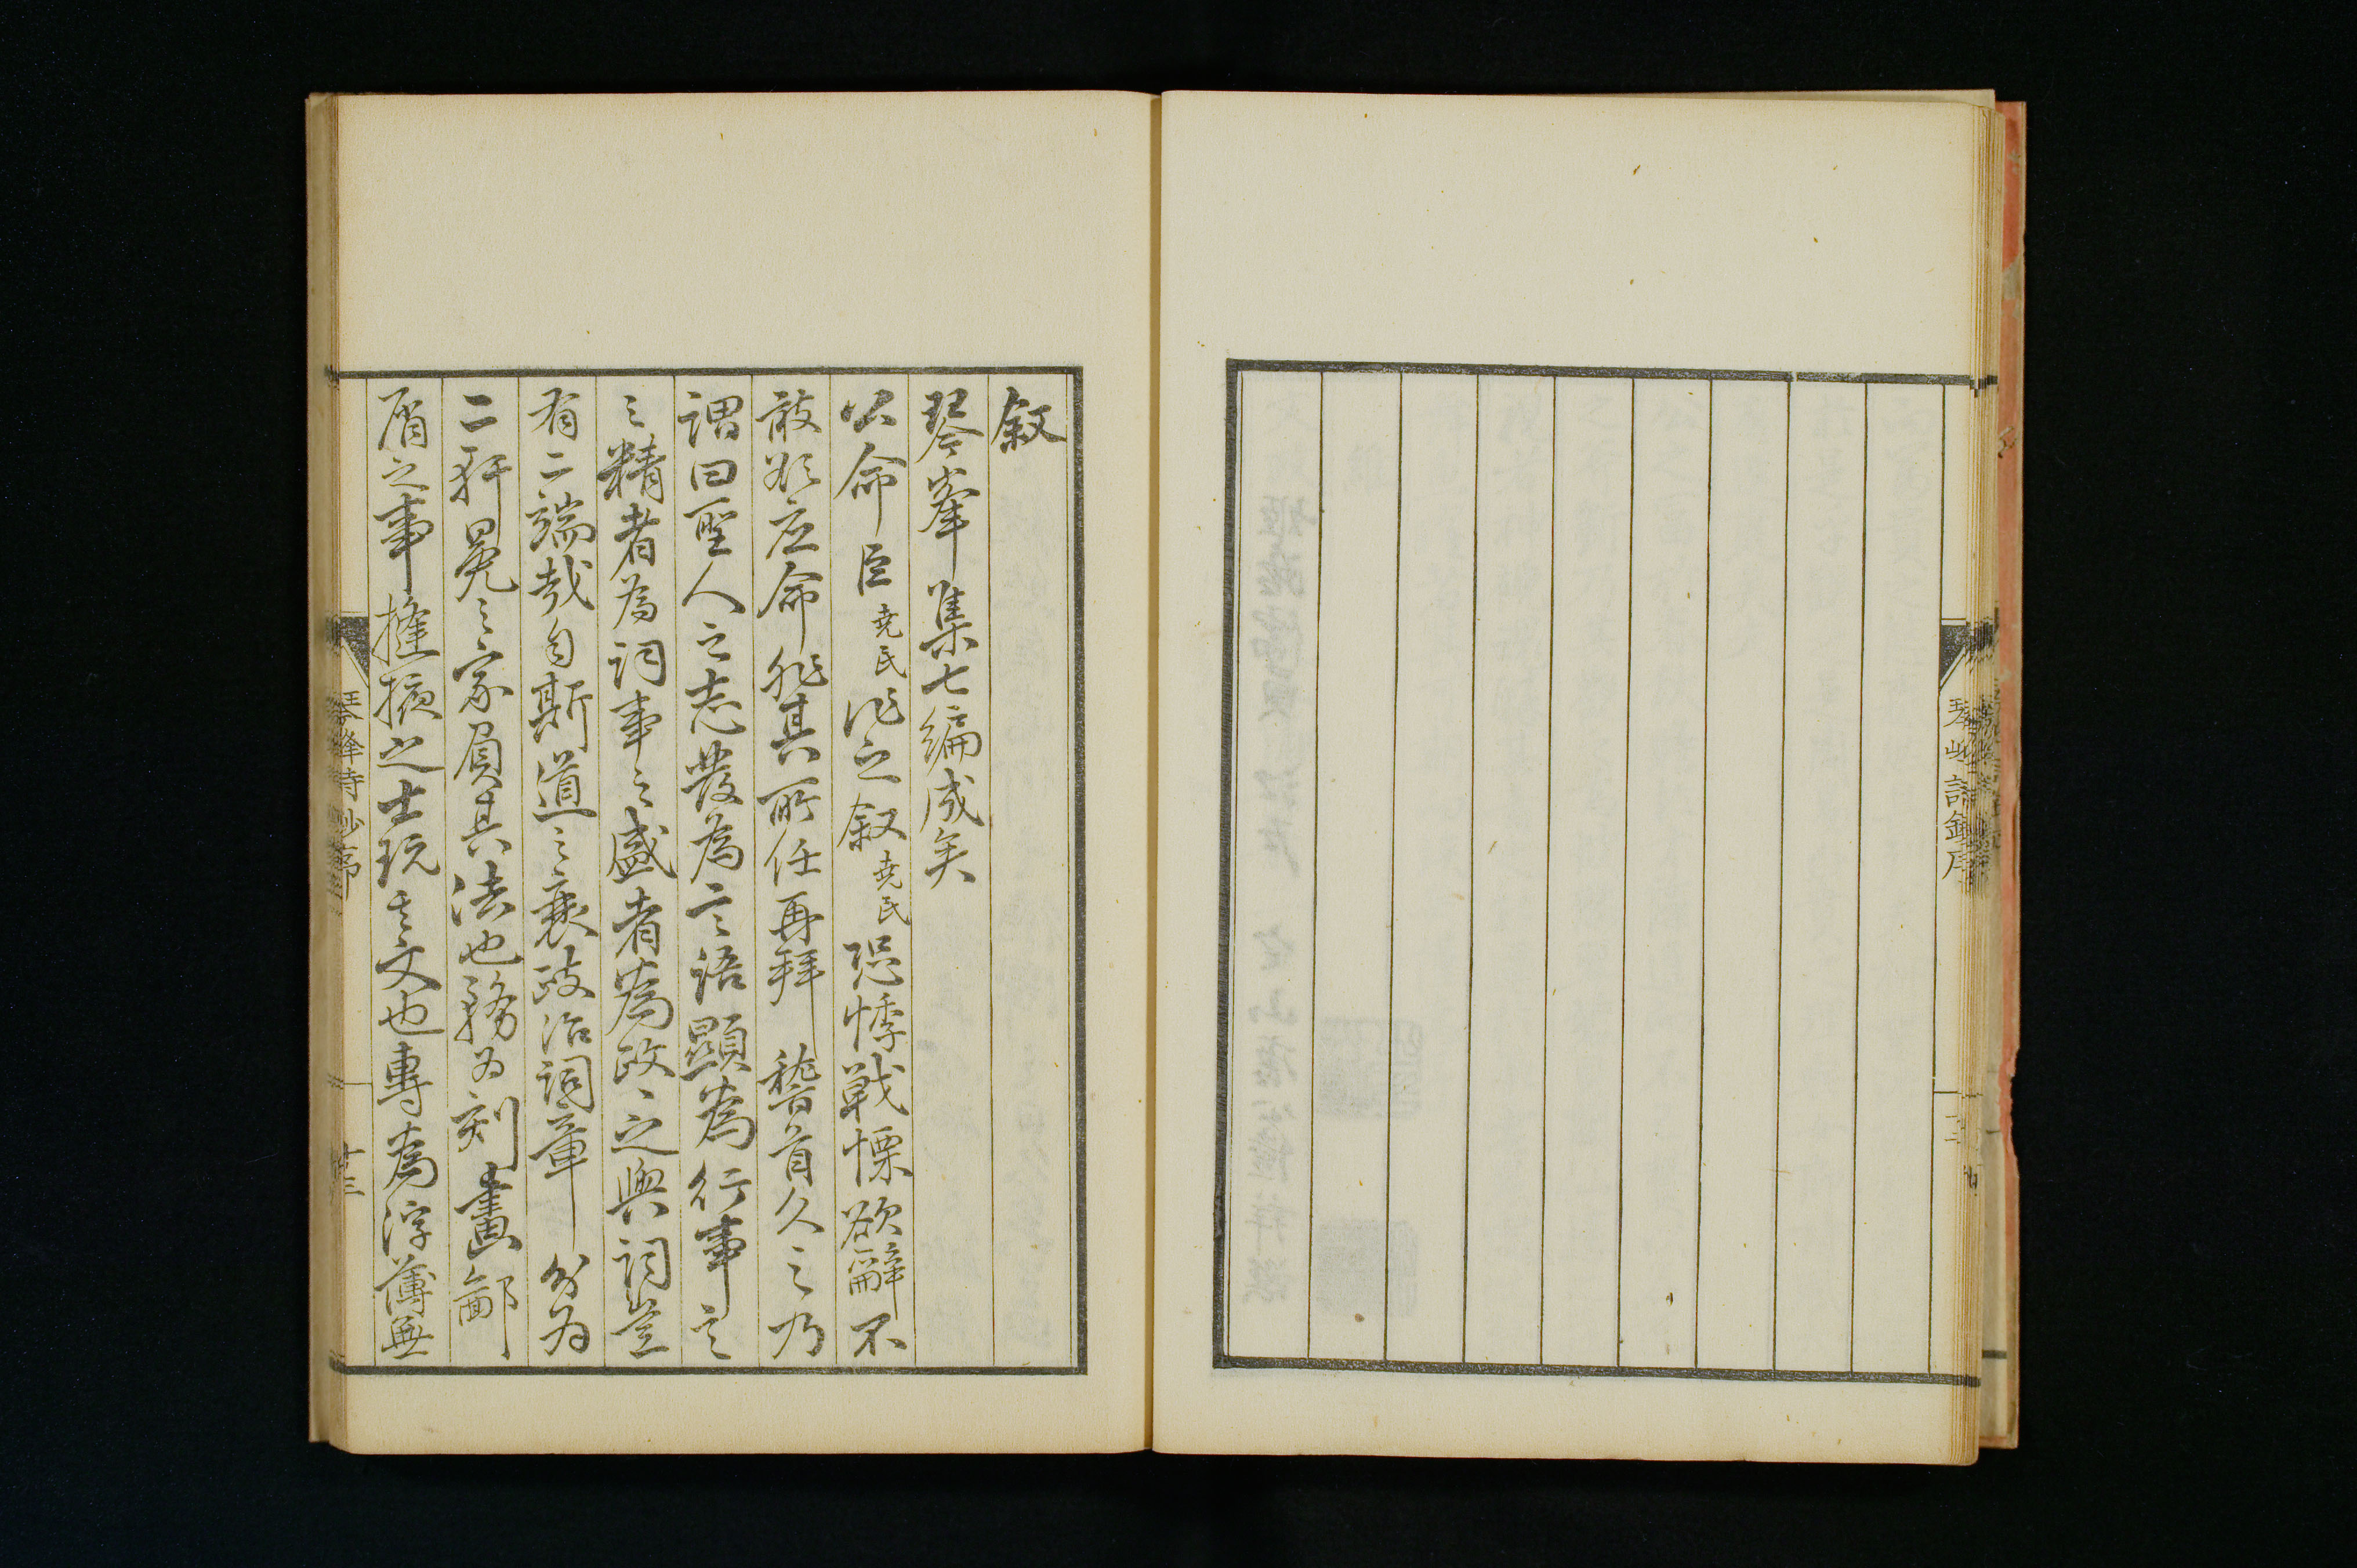 琴峯詩鈔序
叙
琴峯集七編成矣
公命臣堯民作之叙堯民恐悸戦慄欲辭不
敢欲应命非其所任再拜稽首久之乃
謂曰聖人之志發為言語顯為行事言
之精者為詞事之盛者為政々之與詞豈
有二端哉自斯道之衰政治詞章分为
二軒冕之家屑其法也務为刻畫鄙
屑之事搢掖之士玩其文也專為浮薄無
琴峰詩鈔序